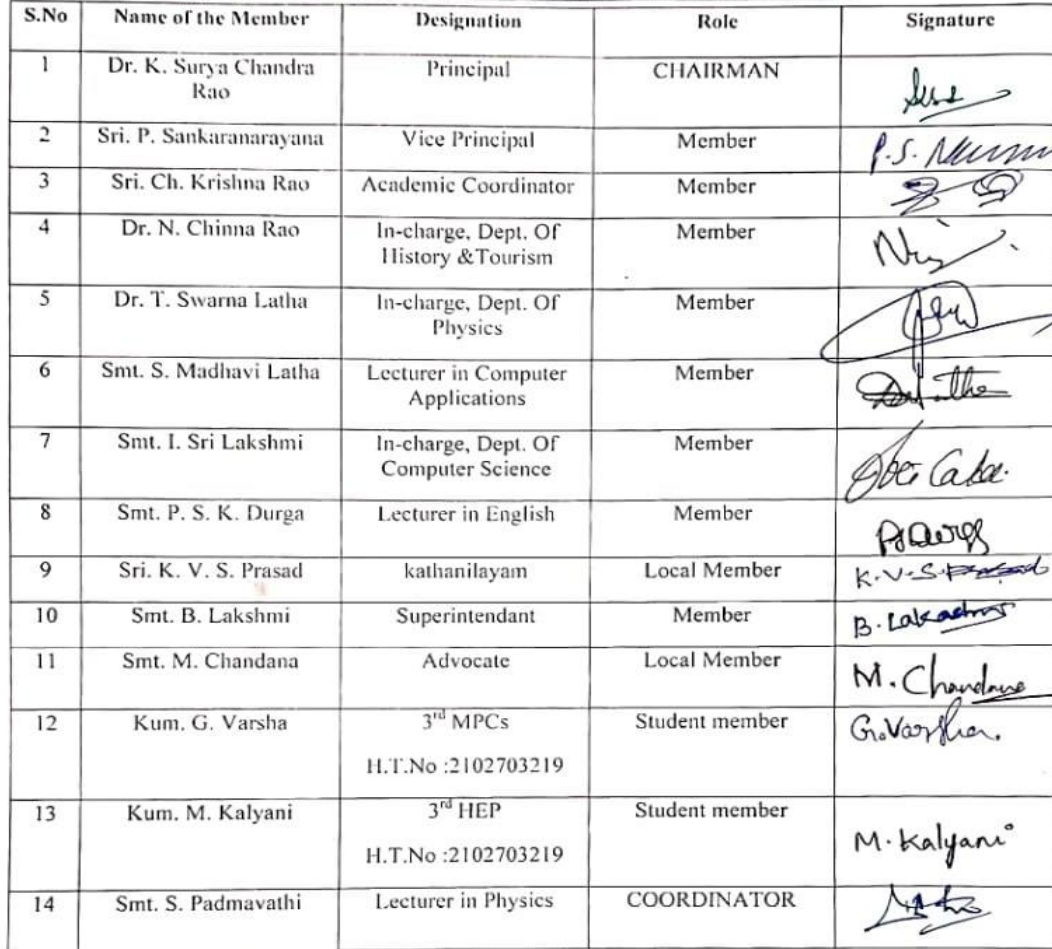 S.No Name of the Member Designation Role Signature
1 Dr. K. Surya Chandra Principal CHAIRMAN
Rao
2 Sri. P. Sankaranarayana Vice Principal Member P.S.
3 Sri. Ch. Krishna Rao Academic Coordinator Member
4 Dr. N. Chinna Rao In-charge, Dept. Of Member
History &Tourism
5 Dr. T. Swarna Latha In-charge, Dept. Of Member
Physics
6 Smt. S. Madhavi Latha Lecturer in Computer Member
Applications
7 Smt. I. Sri Lakshmi In-charge, Dept. Of Member
Computer Science
8 Smt. P. S. K. Durga Lecturer in English Member
9 Sri. K. V. S. Prasad kathanilayam Local Member K.V.S.Prasad
10 Smt. B. Lakshmi Superintendant Member B.Lakshmi
11 Smt. M. Chandana Advocate Local Member M.Chandana
12 Kum. G. Varsha 3rd MPCs Student member G.Varsha.
H.T.No :2102703219
13 Kum. M. Kalyani 3rd HEP Student member M.Kalyani
H.T.No :2102703219
14 Smt. S. Padmavathi Lecturer in Physics COORDINATOR